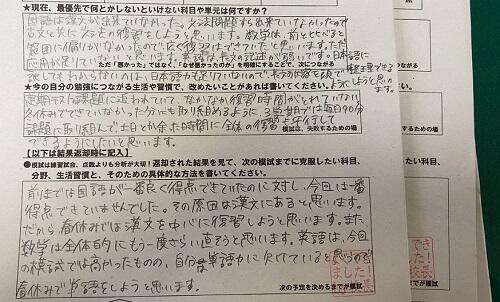 ★現在、最優先で何とかしないといけない科目や単元は何ですか?
国語は漢文が出来ていなかった。文法問題すら出来ていなかったので
古文と共に文法の復習をしようと思います。数学は、前と比べると
範囲に偏りがなかったので、広く復習はできていたと思います。ただ
応用が足りていないと思います。英語は長文の記述が弱いです。日本語に
ただ「悪かった」ではなく「なぜ悪かったのか」を明確にすることで、次につながる
訳してもわからないのは、日本語力も足りていないので、長文の
ようにしようと思います。
★今の自分の勉強につながる生活や習慣で、改めたいことがあれば書いてください。
定期テストや課題に追われていて、なかなか復習時間がとれていない
冬休みでできていなかった分にも取り組めるように、3学期では毎日90分
課題に取り組んで土日とか余った時間に全体の復習も平行して
できるようにしたいと思います。
模試は、失敗するための場
【以下は結果返却時に記入】
●模試は練習試合、点数よりも分析が大切!返却された結果を見て、次の模試までに克服したい科目、
分野、生活習慣と、そのための具体的な方法を書いてください。
前までは国語が一番良く得点できていたのに対し、今回は一番
得点できていませんでした。その原因は漢文にあると思います。
だから春休みでは漢文を中心に復習しようと思います。また
数学は全体的にもう一度さらい直そうと思います。英語は、今回
の模試では高かったものの、自分は単語力に欠けていると思うので
春休みで単語をしようと思います。
次の予定を決めるまでが模試
ました!
校長